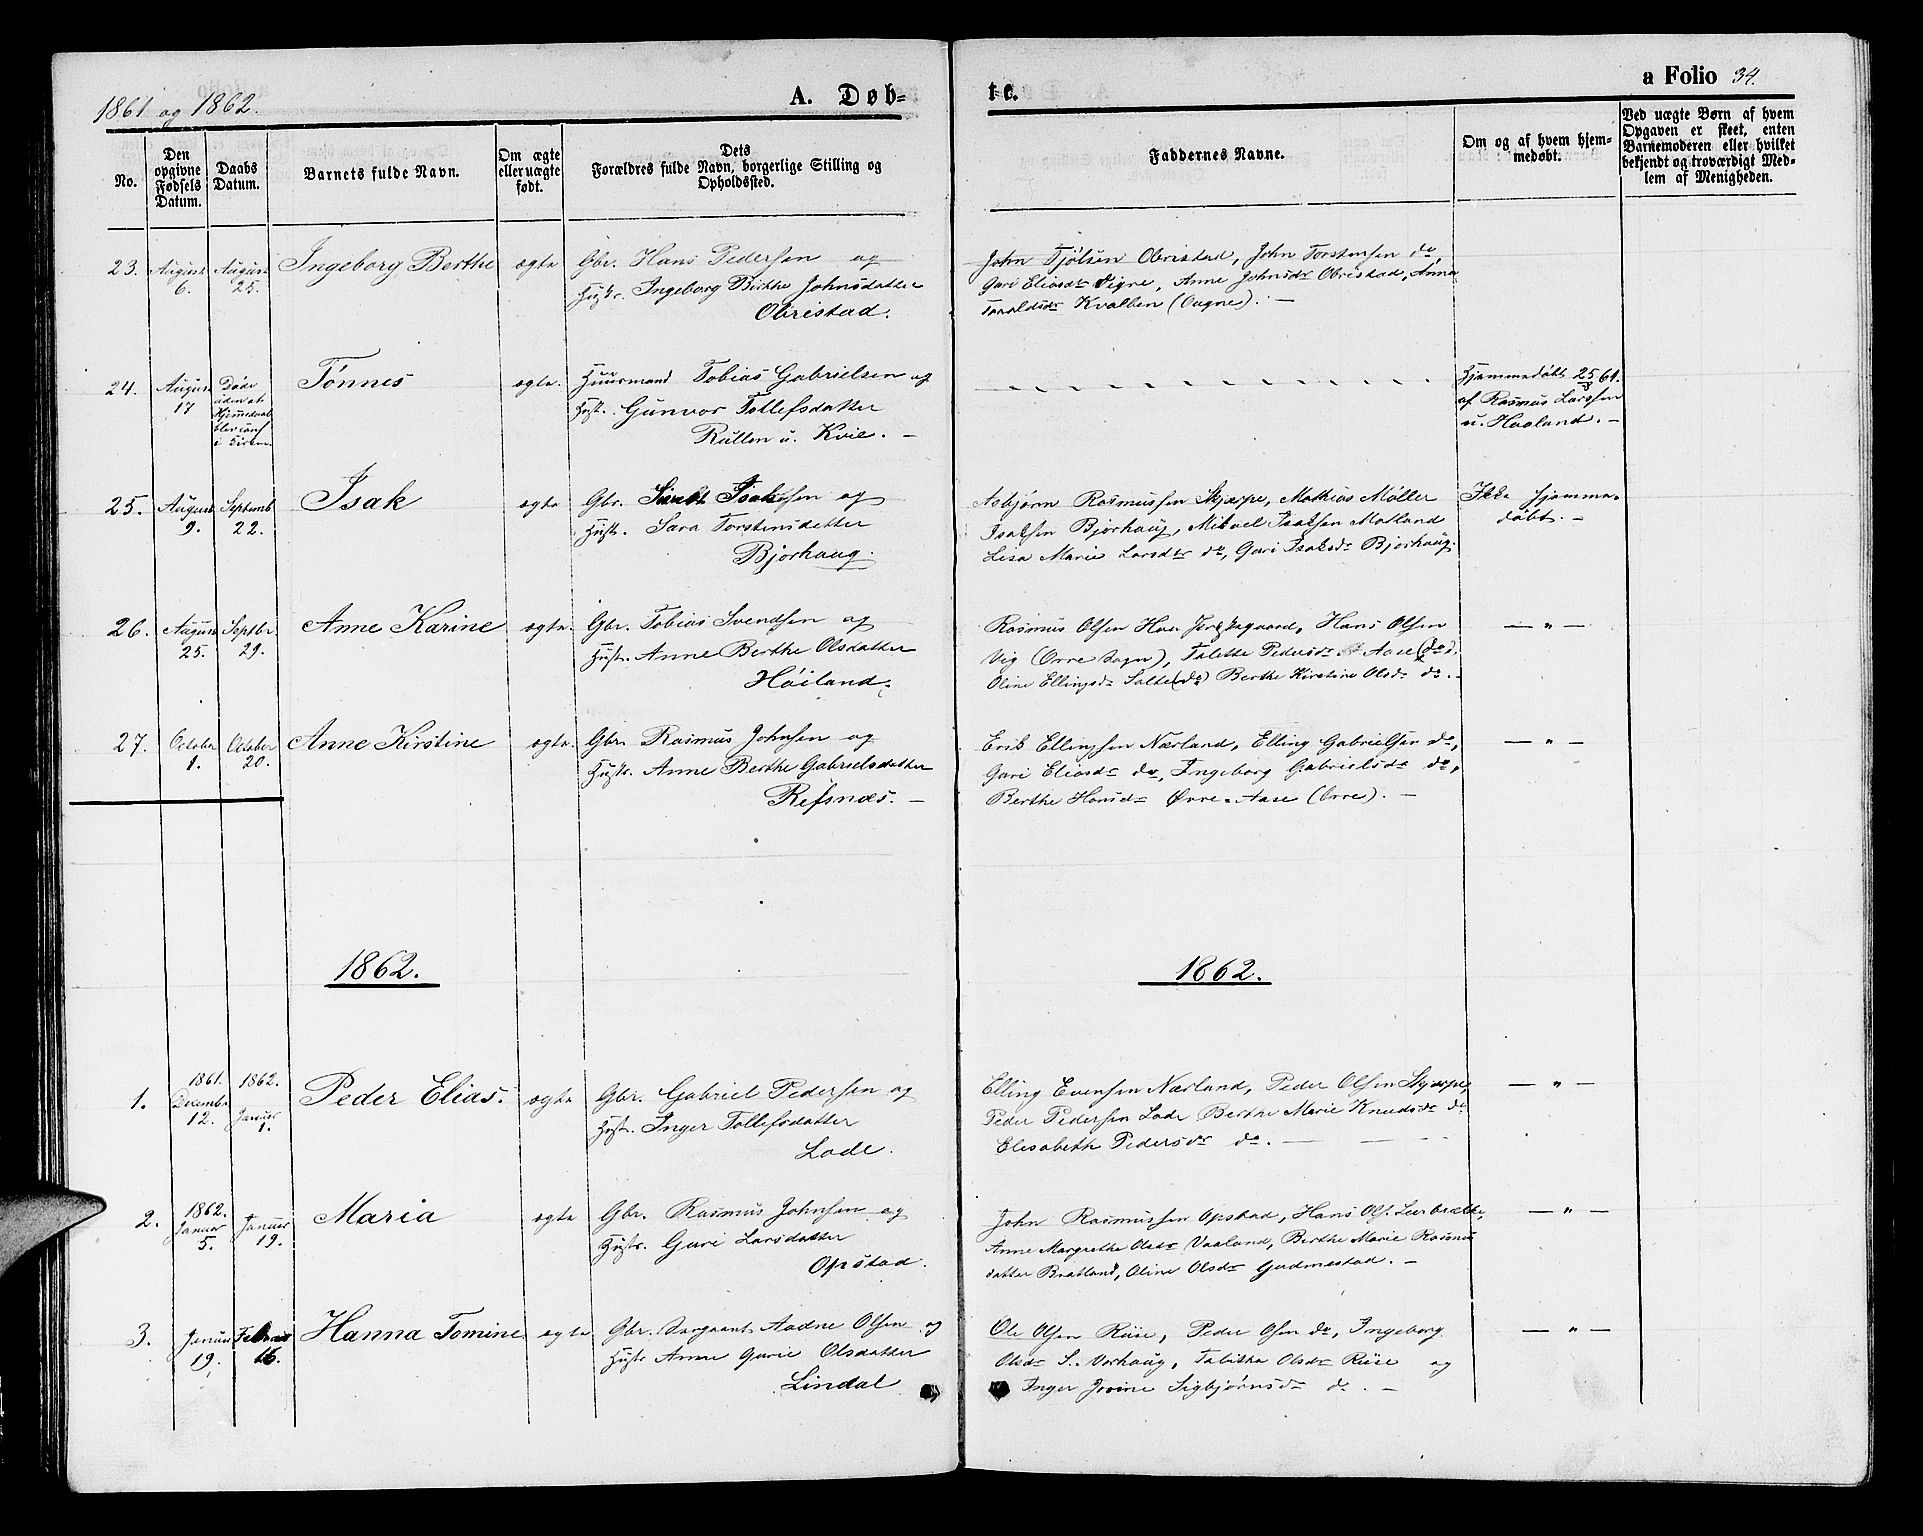 1861 og 1862.
A. Døb-
te.
a Folio 34.
No.
Den opgivne Fødsels Datum.
Daabs Datum.
Barnets fulde Navn.
Om ægte eller uægte født.
Dets Forældres fulde Navn, borgerlige Stilling og Opholdssted.
Faddernes Navne.
Om og af hvem hjemmedøbt.
Ved uægte Børn af hvem Opgaven er skeet, enten Barnemoderen eller hvilket bekjendt og troværdigt Medlem af Menigheden.
23. August 6. August 25. Ingeborg Berthe ægte Gbr. Hans Pedersen og
Hustr. Ingeborg Birthe Johnsdatter
Obrestad.
John Tjølsen Obrestad, John Torstensen do,
Guri Eliasdr Vigre, Anne Johnsdr Obrestad, Anna
Taraldsdr Kvalben (Ougne). —
24. August 17 Døde uden at Hjemmedaab blev conf i Kirken Tønnes ægte. Huusmand Tobias Gabrielsen og
Hust. Gunvor Tollefsdatter
Rullen u. Kvie. —
Hjemmedøbt 25/8 61.
af Rasmus Larssen
u. Haaland. —
25. August 9. Septemb 22. Isak ægte Gbr. Isaksen og
Hust. Sara Torstensdatter
Bjorhaug.
Asbjørn Rasmussen Skjærpe, Mathias Møller
Isaksen Bjorhaug, Mikael Isaksen Motland
Lisa Marie Larsdtr do, Guri Isaksdr Bjorhaug.
Ikke hjemme-
døbt. —
26. August 25. Septbr. 29. Anne Karine ægte. Gbr. Tobias Svendsen og
Hust. Anne Berthe Olsdatter
Høiland.
Rasmus Olsen Haa Prestegaard, Hans Olsen
Vig (Orre Sogn), Talette Pedersdr Aase (do),
Oline Ellingsdr Salte (do) Berthe Kirstine Olsdr do. —
— " —
27. October 1. October 20. Anne Kirstine ægte. Gbr. Rasmus Johnsen og
Hustr. Anne Berthe Gabrielsdatter
Refsnæs. —
Erik Ellingsen Nærland, Elling Gabrielsen do,
Guri Eliasdr do, Ingeborg Gabrielsdr do,
Berthe Hansdr Øvre-Aase (Orre). —
— " —
1862.
1862.
1. 1861. Decemb 12. 1862. Januar 1. Peder Elias. ægte Gbr. Gabriel Pedersen og
Hustr. Inger Tollefsdatter
Lode.
Elling Evensen Nærland, Peder Olsen Skjærpe,
Peder Pedersen Lode Berthe Marie Knudsdr do
Elisabeth Pedersdr do. —
— " —
2. 1862. Januar 5. Januar 19. Maria ægte Gbr. Rasmus Johnsen og
Hustr. Guri Larsdatter
Opstad.
John Rasmussen Opstad, Hans Ols. Leerbrække,
Anne Margrethe Olsdr Vaaland, Berthe Marie Rasmus
datter Bratland, Oline Olsdr Gudmestad. —
— " —
3. Januar 19. Februar 16. Hanna Tomine ægte Gbr. Sergeant Aadne Olsen og
Hustr Anne Gurie Olsdatter
Lindal
Ole Olsen Riise, Peder Osen do, Ingeborg
Olsdr S. Varhaug, Tabitha Olsdr Riise og
Inger Jorine Sigbjørnsdr do. —
— " —